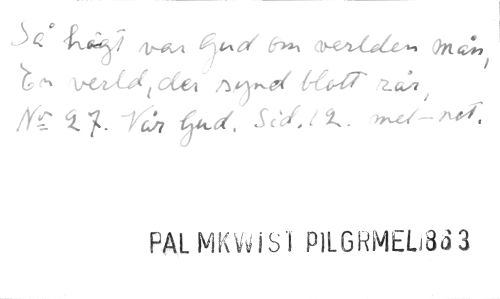 Så högt var Gud om verlden mån,
En verld, der synd blott rår,
No 27. Vår Gud. Sid. 12. mel-not.
PALMKWIST PILGRMEL1863